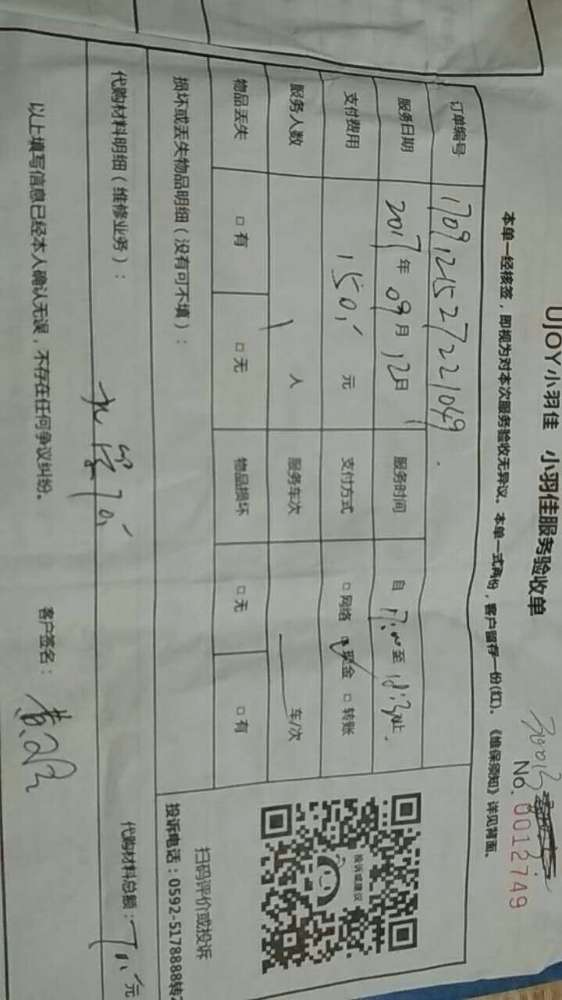 UJOY小羽佳 小羽佳服务验收单
No. 0012749
本单一经核签，即视为对本次服务验收无异议。本单一式两份，客户留存一份(红)。《维保须知》详见背面。
订单编号 170912152722049
服务日期 2017年09月12日 服务时间 自 17:00 至 18:30止
支付费用 150 元 支付方式 □网络 □现金 □转账
服务人数 1 人 服务车次 车/次
物品丢失 □有 □无 物品损坏 □无 □有
损坏或丢失物品明细（没有可不填）：
投诉或建议
扫码评价或投诉
投诉电话：0592-5178888转2
代购材料明细（维修业务）：
代购材料总额： 元
以上填写信息已经本人确认无误，不存在任何争议纠纷。
客户签名：